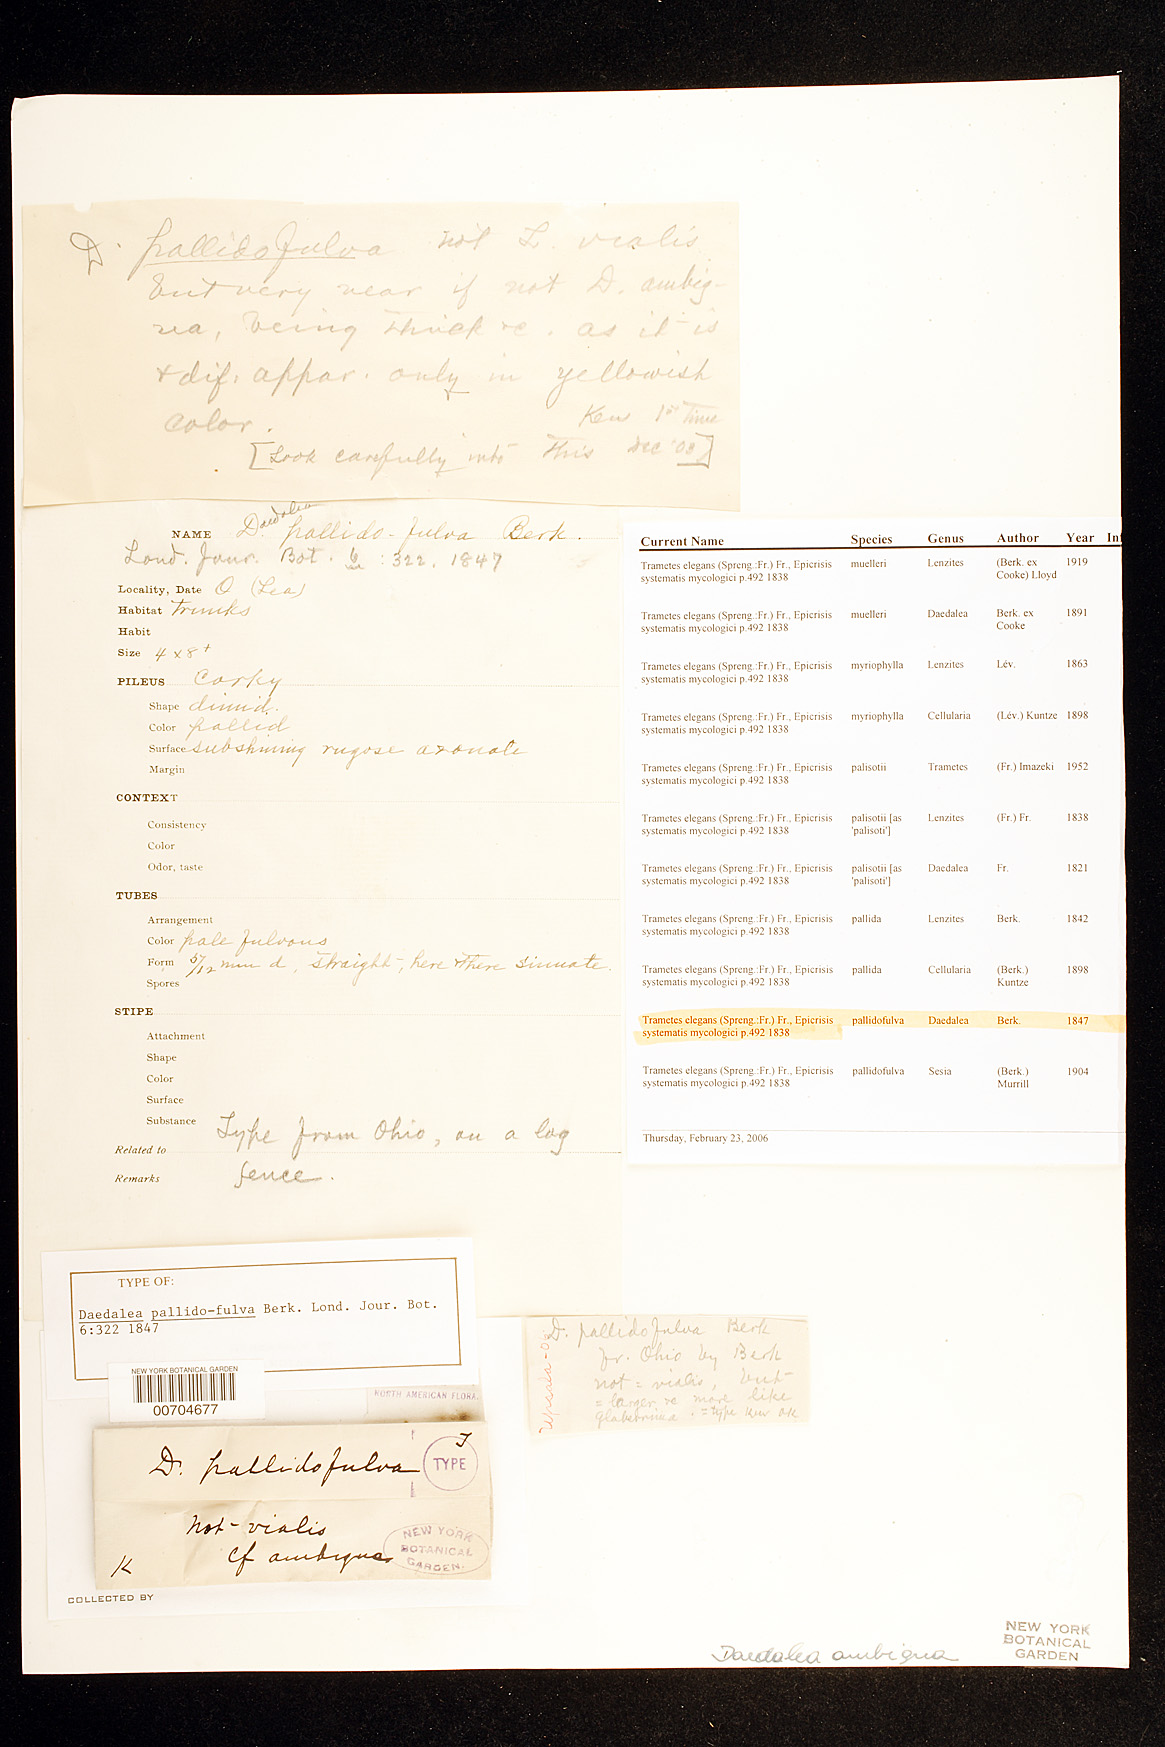 D. pallidofulva not L. vialis
but very near if not D. ambig-
ua, being thick &c. as it is
& dif. appar. only in yellowish
color. Kew 1st Time
[Look carefully into this Dec '08]
NAME D. Daedalea pallido-fulva Berk.
Lond. Jour. Bot. 6 : 322. 1847
Locality, Date O (Lea)
Habitat trunks
Habit
Size 4 x 8 +
PILEUS Corky
Shape dimid.
Color pallid
Surface subshining rugose azonate
Margin
CONTEXT
Consistency
Color
Odor, taste
TUBES
Arrangement
Color pale fulvous
Form 5/12 mm d, straight, here & there sinuate.
Spores
STIPE
Attachment
Shape
Color
Surface
Substance
Type from Ohio, on a log
Related to
fence.
Remarks
Current Name Species Genus Author Year Inf
Trametes elegans (Spreng.:Fr.) Fr., Epicrisis muelleri Lenzites (Berk. ex 1919
systematis mycologici p.492 1838 Cooke) Lloyd
Trametes elegans (Spreng.:Fr.) Fr., Epicrisis muelleri Daedalea Berk. ex 1891
systematis mycologici p.492 1838 Cooke
Trametes elegans (Spreng.:Fr.) Fr., Epicrisis myriophylla Lenzites Lév. 1863
systematis mycologici p.492 1838
Trametes elegans (Spreng.:Fr.) Fr., Epicrisis myriophylla Cellularia (Lév.) Kuntze 1898
systematis mycologici p.492 1838
Trametes elegans (Spreng.:Fr.) Fr., Epicrisis palisotii Trametes (Fr.) Imazeki 1952
systematis mycologici p.492 1838
Trametes elegans (Spreng.:Fr.) Fr., Epicrisis palisotii [as Lenzites (Fr.) Fr. 1838
systematis mycologici p.492 1838 'palisoti']
Trametes elegans (Spreng.:Fr.) Fr., Epicrisis palisotii [as Daedalea Fr. 1821
systematis mycologici p.492 1838 'palisoti']
Trametes elegans (Spreng.:Fr.) Fr., Epicrisis pallida Lenzites Berk. 1842
systematis mycologici p.492 1838
Trametes elegans (Spreng.:Fr.) Fr., Epicrisis pallida Cellularia (Berk.) 1898
systematis mycologici p.492 1838 Kuntze
Trametes elegans (Spreng.:Fr.) Fr., Epicrisis pallidofulva Daedalea Berk. 1847
systematis mycologici p.492 1838
Trametes elegans (Spreng.:Fr.) Fr., Epicrisis pallidofulva Sesia (Berk.) 1904
systematis mycologici p.492 1838 Murrill
Thursday, February 23, 2006
TYPE OF:
Daedalea pallido-fulva Berk. Lond. Jour. Bot.
6:322 1847
NEW YORK BOTANICAL GARDEN
00704677
NORTH AMERICAN FLORA.
D. pallidofulva
T
TYPE
not vialis
cf ambigua
K
NEW YORK
BOTANICAL
GARDEN.
COLLECTED BY
D. pallidofulva Berk
fr. Ohio by Berk
not = vialis, but
= larger &c more like
glaberrima . = type Kew OK
Upsala
Daedalea ambigua
NEW YORK
BOTANICAL
GARDEN